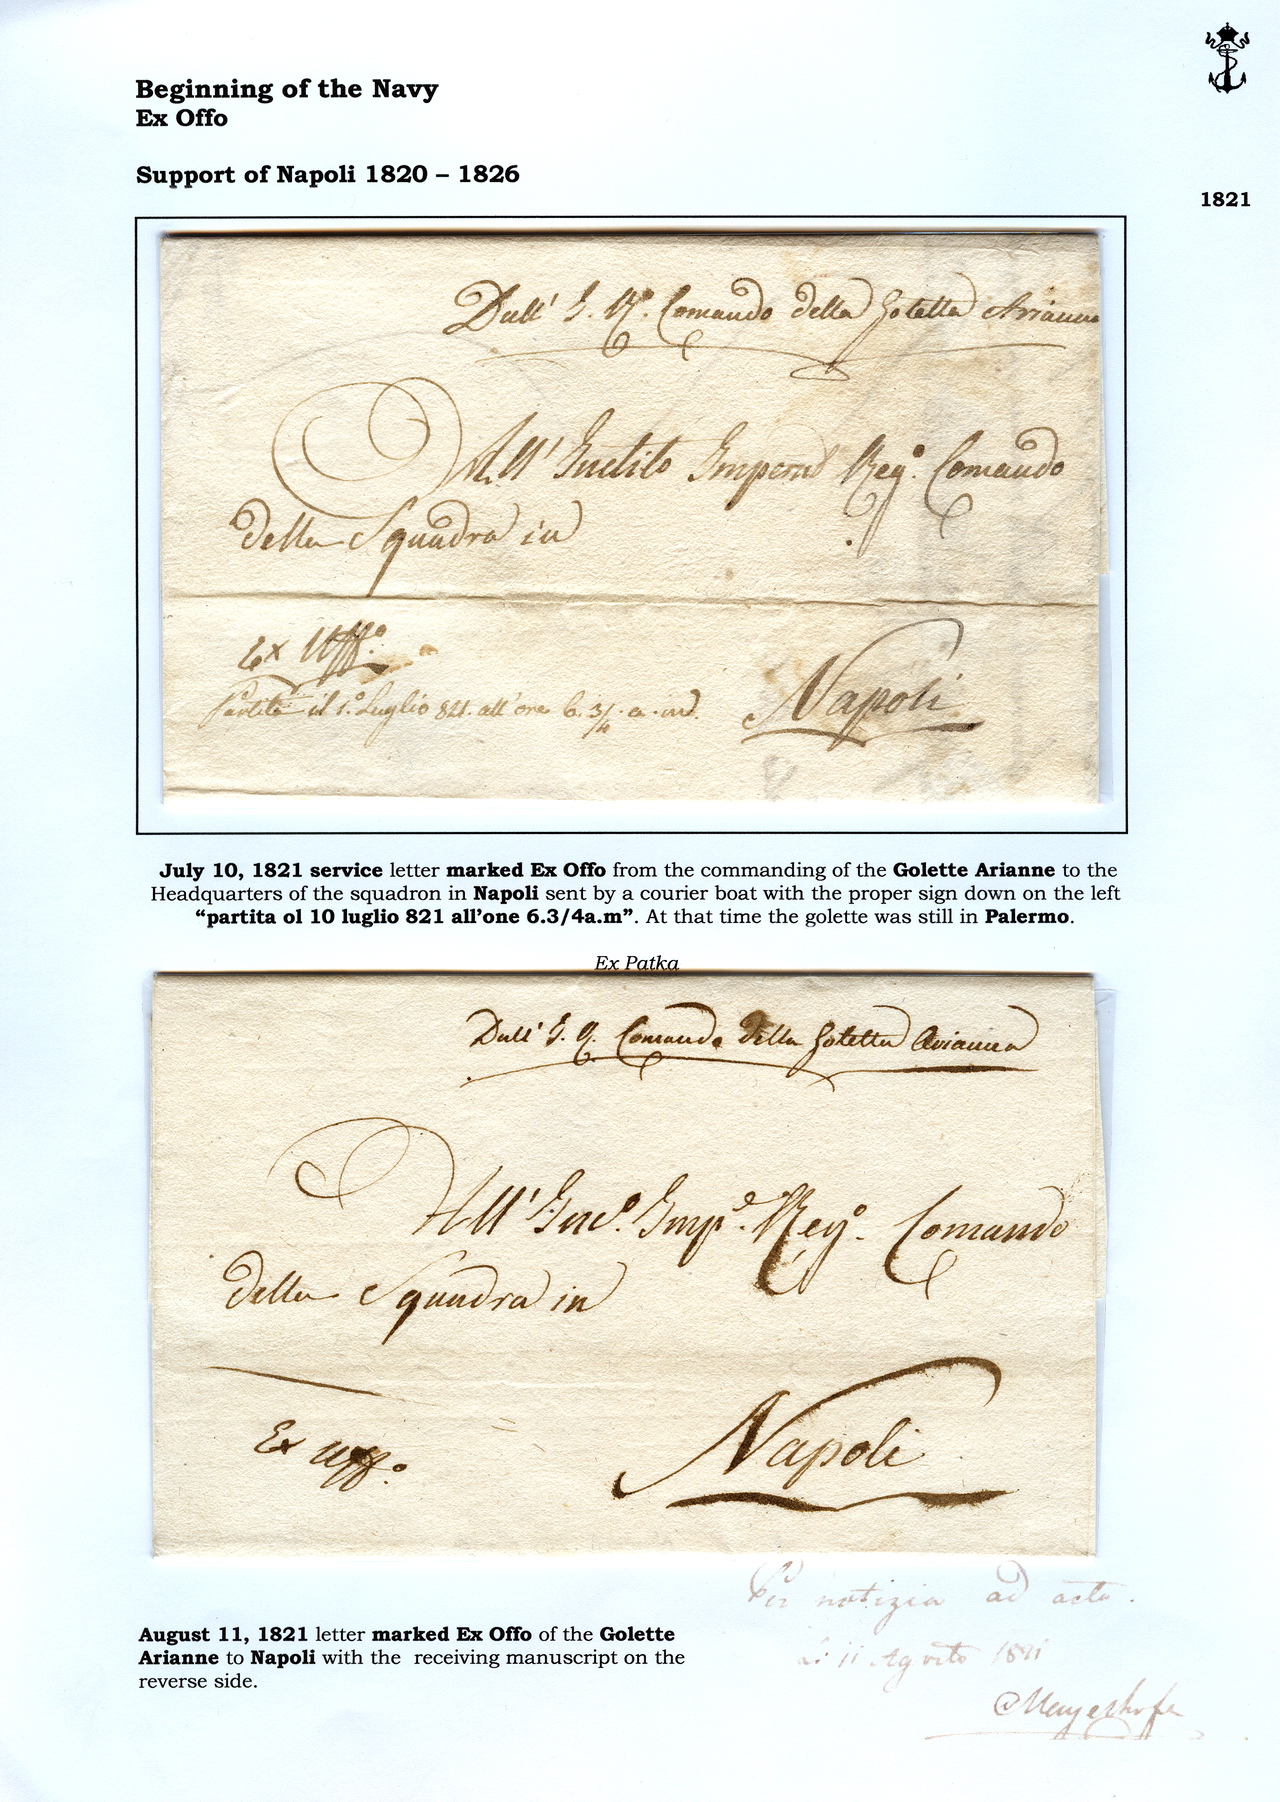 Beginning of the Navy
Ex Offo
Support of Napoli 1820 – 1826
1821
Dall' I. R.º Comando della Goletta Arianna
All' Inclito Imperial Regº. Comando
della Squadra in
Ex Uffº.
Partita il 1.º Luglio 821. all'ore 6. 3/4 a.
Napoli
July 10, 1821 service letter marked Ex Offo from the commanding of the Golette Arianne to the
Headquarters of the squadron in Napoli sent by a courier boat with the proper sign down on the left
“partita ol 10 luglio 821 all’one 6.3/4a.m”. At that time the golette was still in Palermo.
Ex Patka
Dall' I. R. Comando della Goletta Arianna
All' Incº. Impe. Regº. Comando
della Squadra in
Napoli
Ex Uffº.
Per notizia ad acta.
Li 11 Agosto 1821
August 11, 1821 letter marked Ex Offo of the Golette
Arianne to Napoli with the receiving manuscript on the
reverse side.